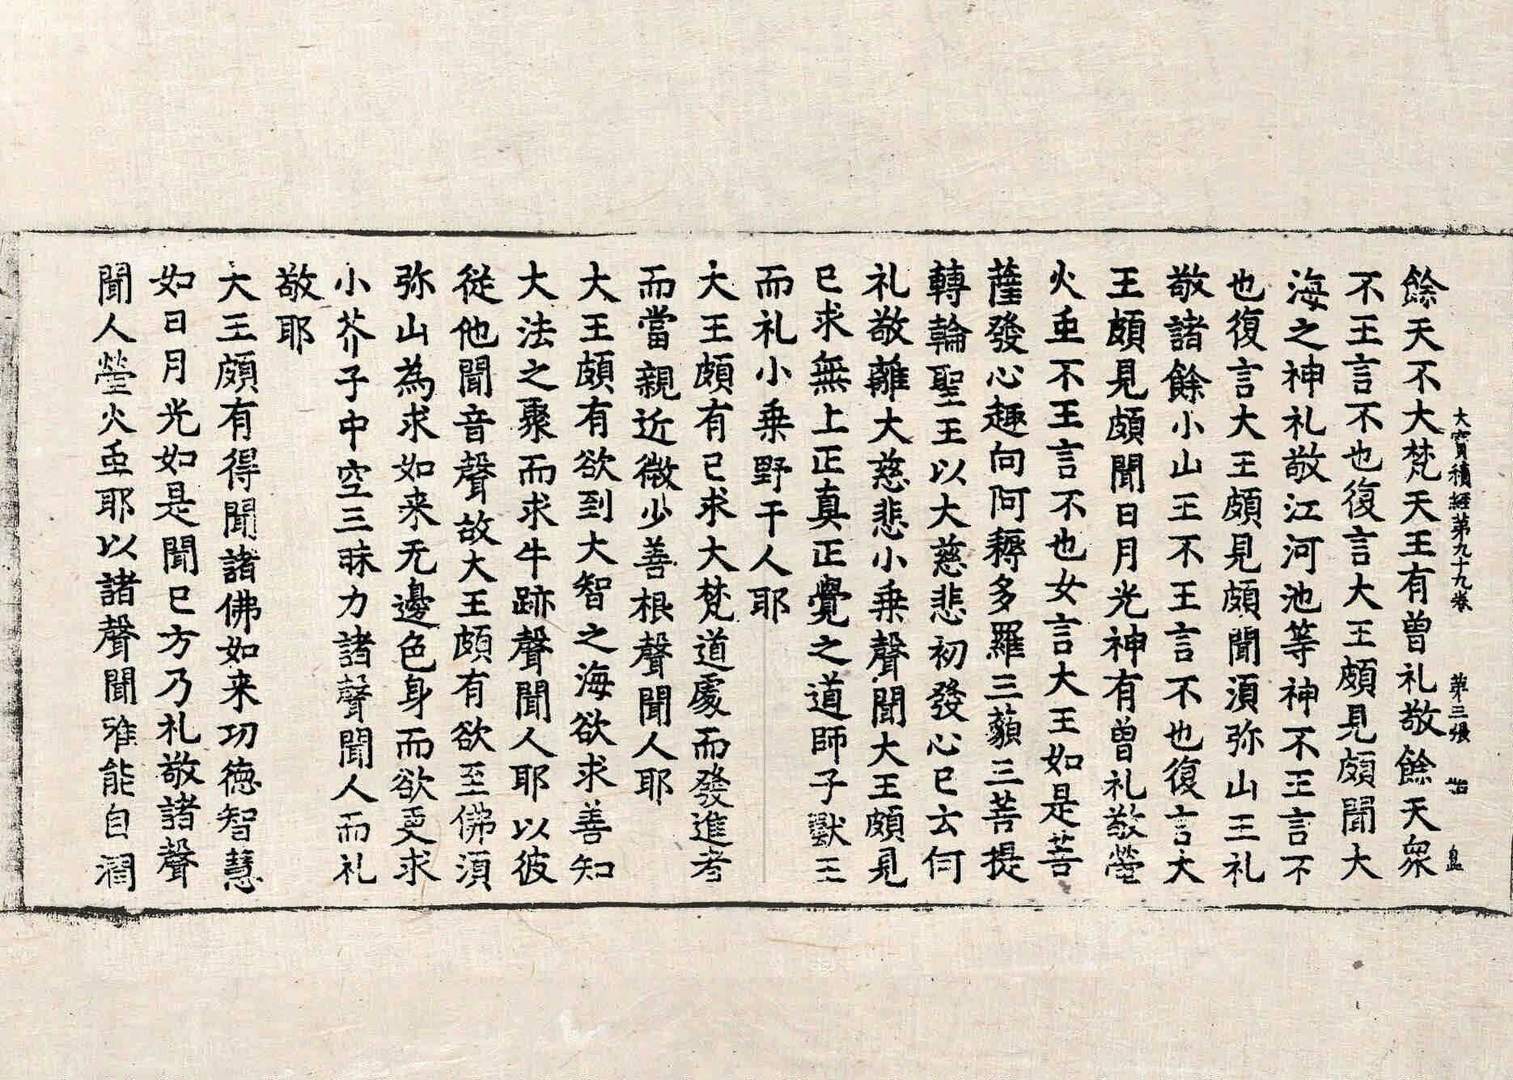 大寶積經第九十九卷　第三張
餘天不大梵天王有曾礼敬餘天衆
不王言不也復言大王頗見頗聞大
海之神礼敬江河池等神不王言不
也復言大王頗見頗聞湏弥山王礼
敬諸餘小山王不王言不也復言大
王頗見頗聞日月光神有曾礼敬螢
火䖝不王言不也女言大王如是菩
薩發心趣向阿耨多羅三藐三菩提
轉輪聖王以大慈悲初發心已云何
礼敬離大慈悲小乗聲聞大王頗見
已求無上正真正覺之道師子獸王
而礼小乗野干人耶
大王頗有已求大梵道處而發進考
而當親近微少善根聲聞人耶
大王頗有欲到大智之海欲求善知
大法之聚而求牛跡聲聞人耶以彼
從他聞音聲故大王頗有欲至佛湏
弥山為求如来无邊色身而欲更求
小芥子中空三昧力諸聲聞人而礼
敬耶
大王頗有得聞諸佛如来功德智慧
如日月光如是聞已方乃礼敬諸聲
聞人螢火䖝耶以諸聲聞唯能自潤